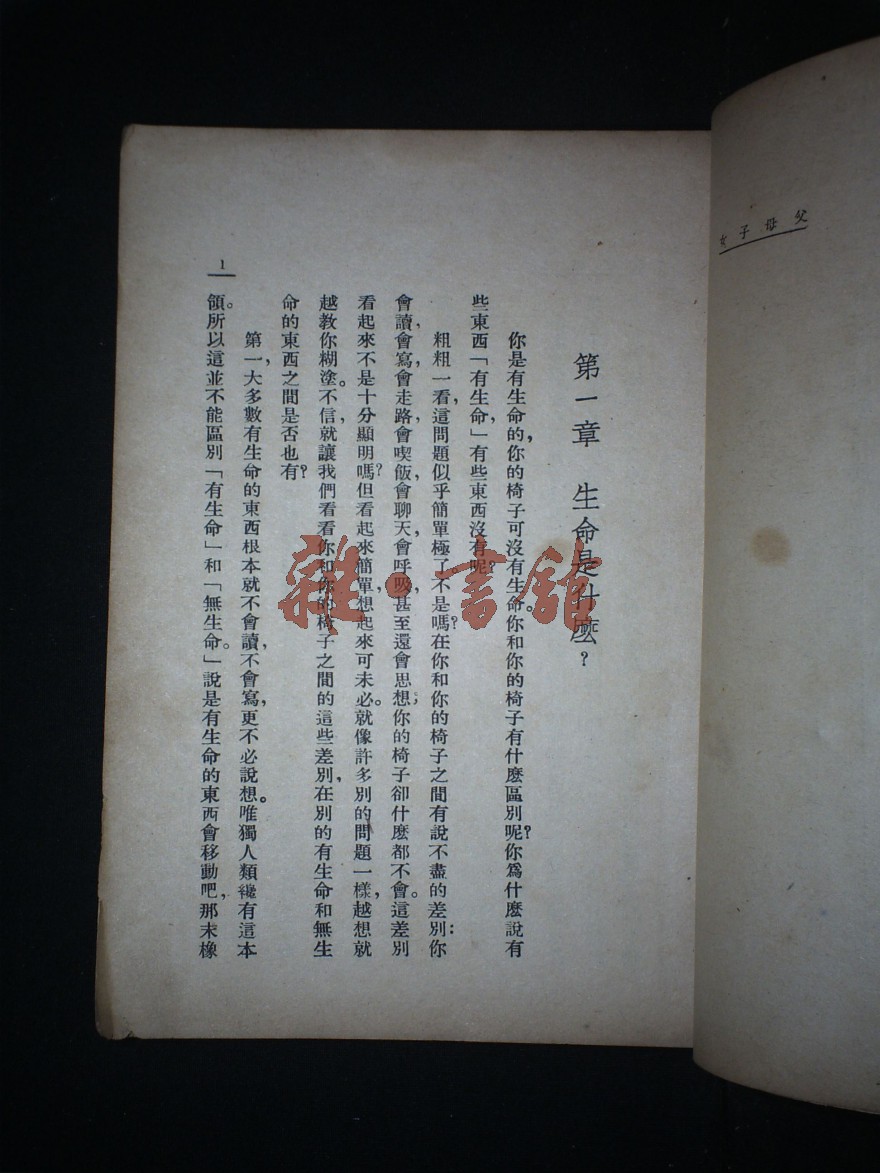 父母子女
第一章 生命是什麽?
你是有生命的,你的椅子可沒有生命。你和你的椅子有什麽區別呢?你爲什麽說有
些東西「有生命,」有些東西沒有呢?
粗粗一看,這問題似乎簡單極了。不是嗎?在你和你的椅子之間有說不盡的差別:你
會讀,會寫,會走路,會喫飯,會聊天,會呼吸,甚至還會思想;你的椅子卻什麽都不會。這差別
看起來不是十分顯明嗎?但看起來簡單,想起來可未必。就像許多別的問題一樣,越想就
越教你糊塗。不信,就讓我們看看你和你的椅子之間的這些差別,在別的有生命和無生
命的東西之間是否也有?
第一,大多數有生命的東西根本就不會讀,不會寫,更不必說想。唯獨人類纔有這本
領。所以這並不能區別「有生命」和「無生命。」說是有生命的東西會移動吧,那末橡
1
雜·書館